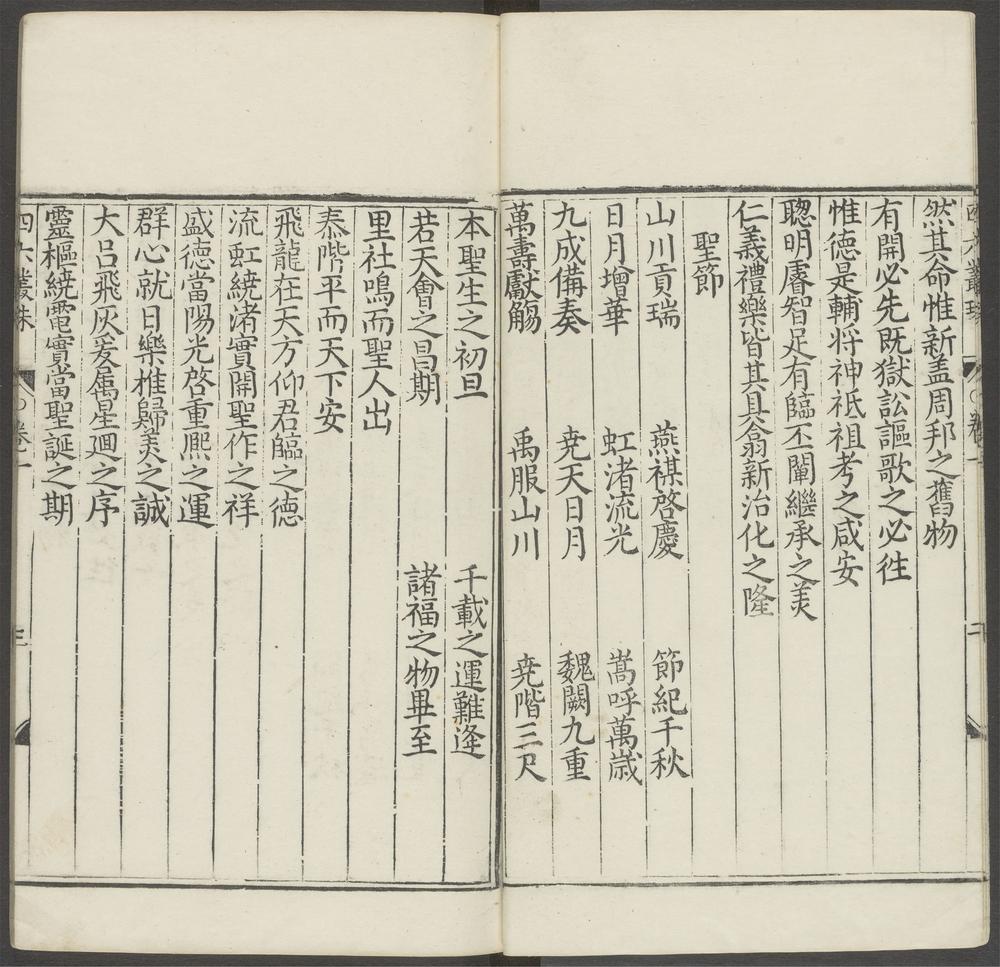 四六叢珠 卷一 二
然其命惟新盖周邦之舊物
有開必先既獄訟謳歌之必徃
惟德是輔將神祇祖考之咸安
聰明睿智足有臨丕闡繼承之美
仁義禮樂皆其具翕新治化之隆
聖節
山川貢瑞 燕禖啓慶 節紀千秋
日月增華 虹渚流光 嵩呼萬歲
九成備奏 尭天日月 魏闕九重
萬壽獻觴 禹服山川 尭階三尺
本聖生之初旦 千載之運難逢
若天會之昌期 諸福之物畢至
里社鳴而聖人出
泰階平而天下安
飛龍在天方仰君臨之德
流虹繞渚實開聖作之祥
盛德當陽光啓重熈之運
群心就日樂推歸美之誠
大呂飛灰爰属星廻之序
靈樞繞電實當聖誕之期
四六叢珠 卷一 三